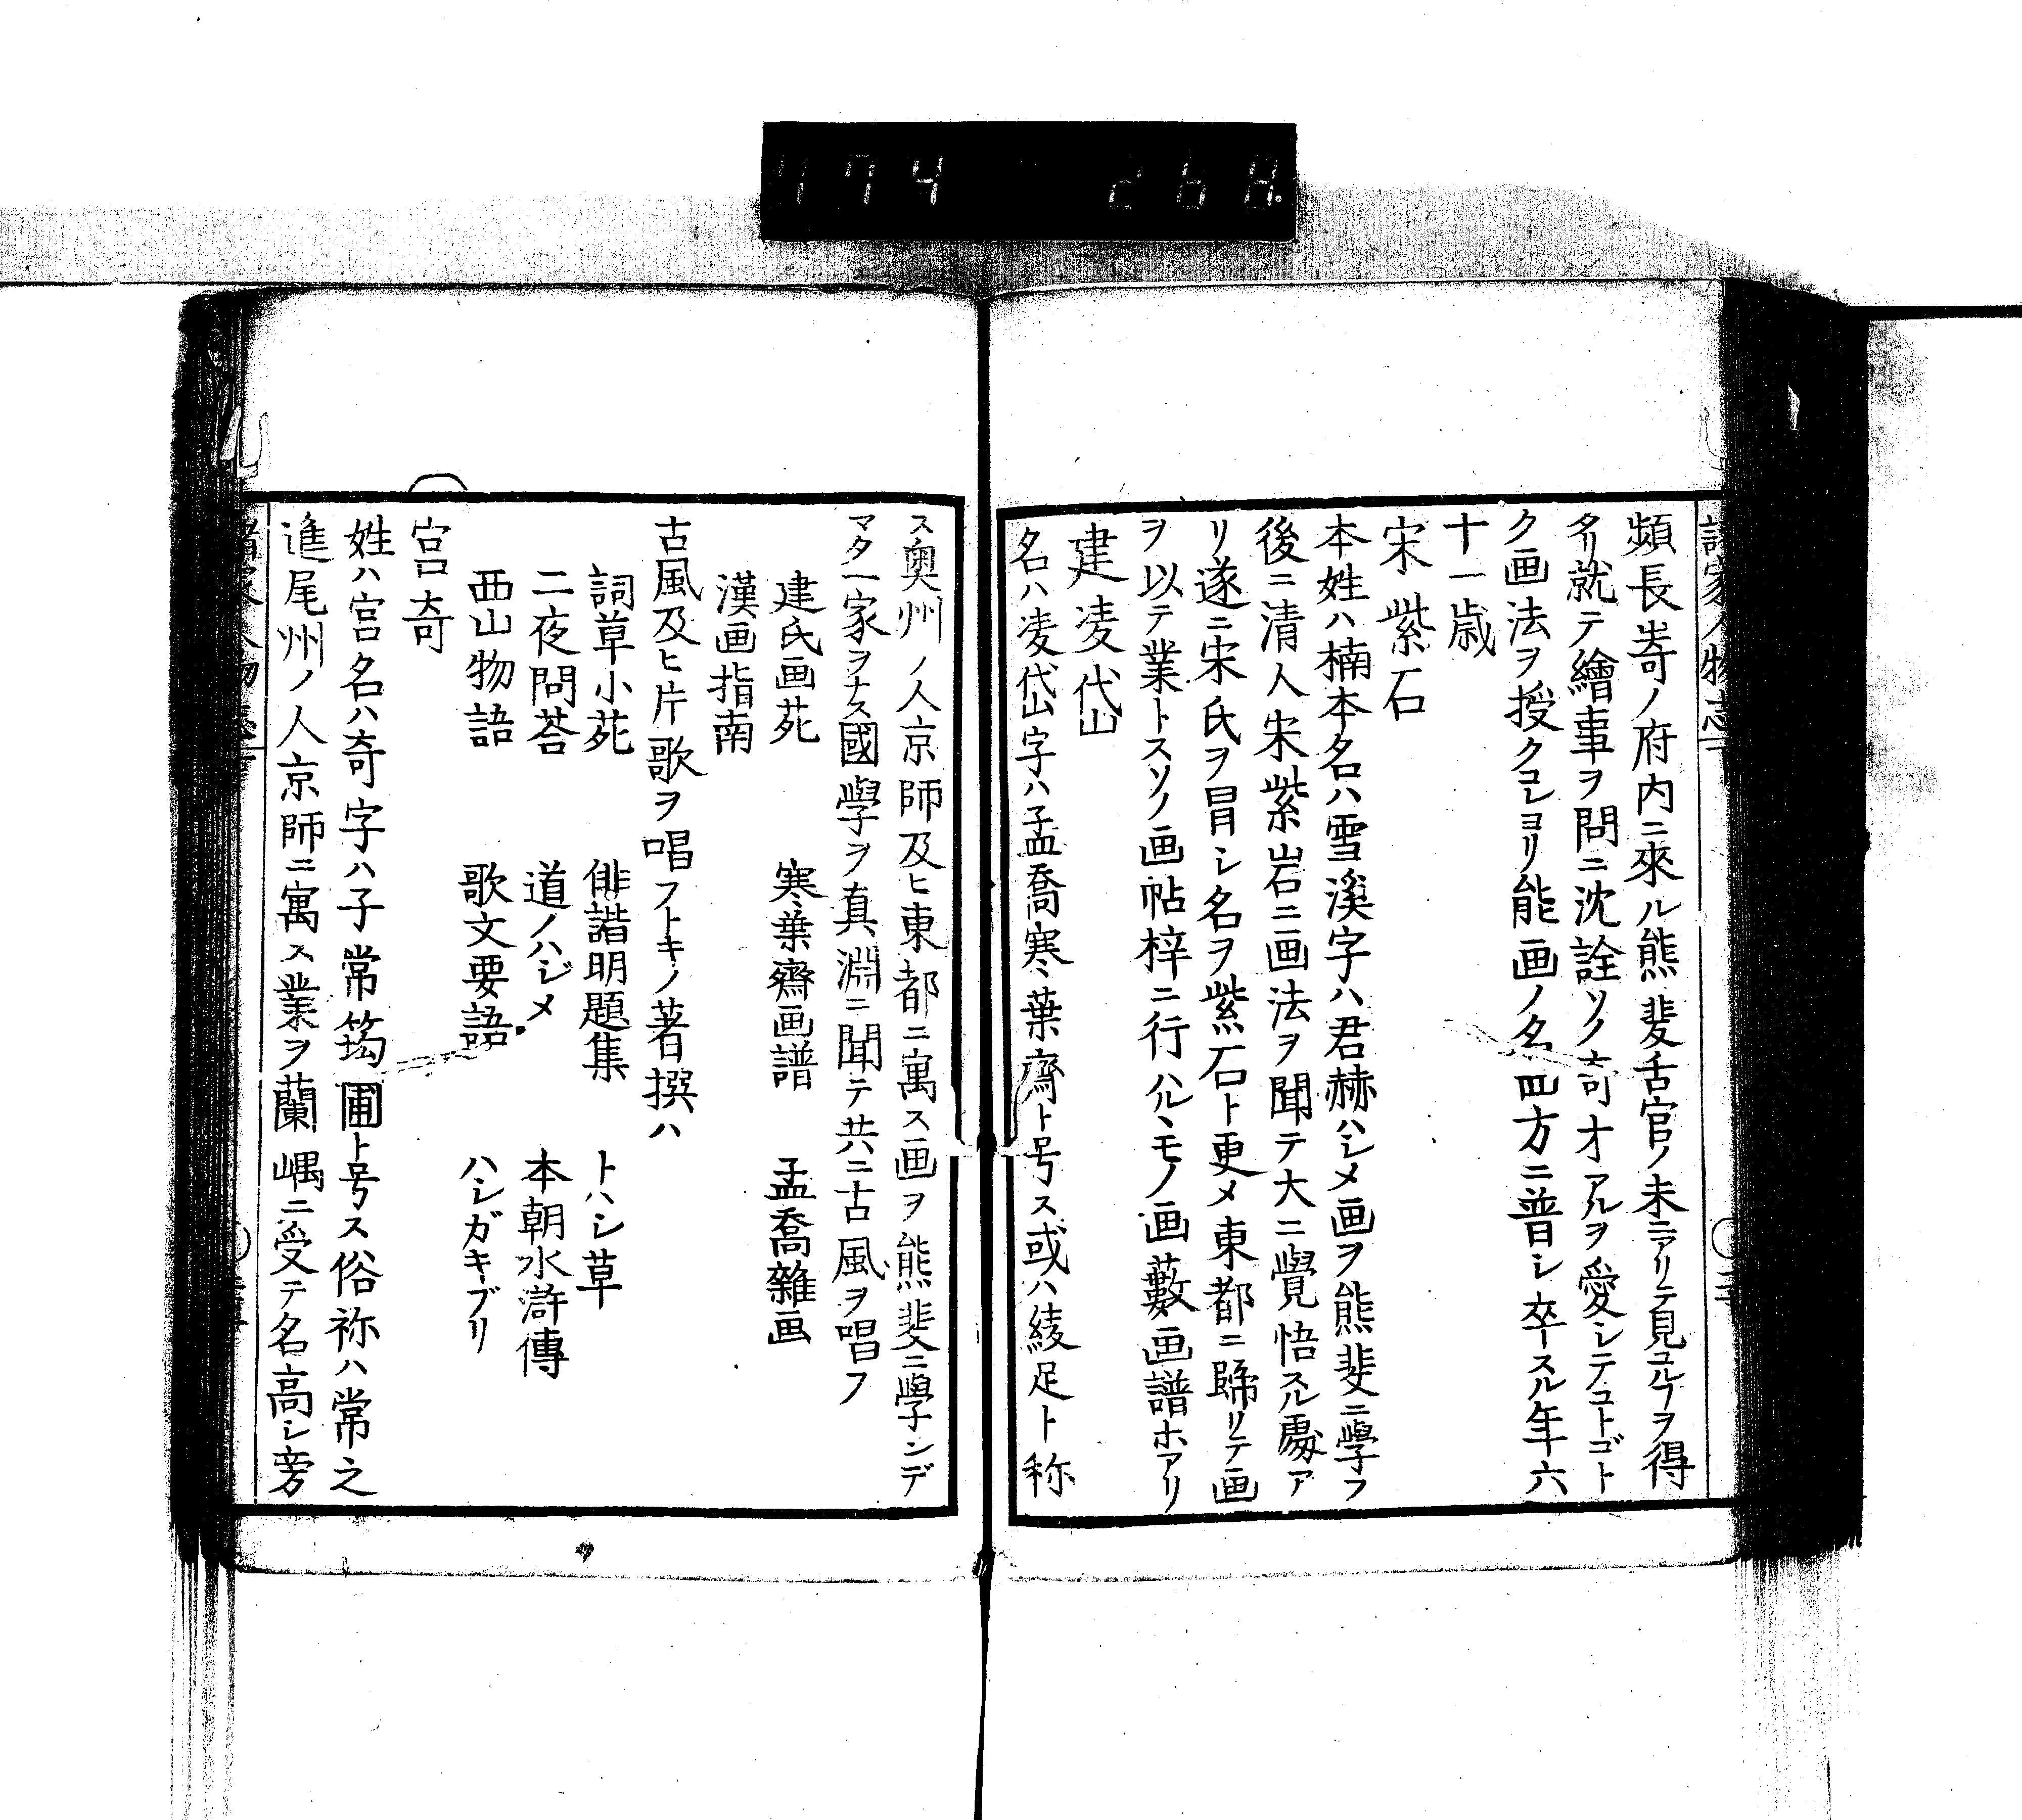 174 268
頻長崎ノ府内ニ來ル熊斐舌官ノ末ニアリテ見ユルヿヲ得
タリ就テ繪事ヲ問ニ沈詮ソノ奇才アルヲ愛シテコトゴト
ク画法ヲ授クコレヨリ能画ノ名四方ニ普シ卒スル年六
十一歳
宋紫石
本姓ハ楠本名ハ雪溪字ハ君赫ハシメ画ヲ熊斐ニ學フ
後ニ清人宋紫岩ニ画法ヲ聞テ大ニ覺悟スル處ア
リ遂ニ宋氏ヲ冒シ名ヲ紫石ト更メ東都ニ歸リテ画
ヲ以テ業トスソノ画帖梓ニ行ハルヽモノ画藪画譜ホアリ
建凌岱
名ハ凌岱字ハ孟喬寒葉齋ト号ス或ハ綾足ト称
ス奧州ノ人京師及ヒ東都ニ寓ス画ヲ熊斐ニ學ンデ
マタ一家ヲナス國學ヲ真淵ニ聞テ共ニ古風ヲ唱フ
建氏画苑 寒葉齋画譜 孟喬雜画
漢画指南
古風及ヒ片歌ヲ唱フトキノ著撰ハ
詞草小苑 俳諧明題集 トハシ草
二夜問荅 道ノハジメ 本朝水滸傳
西山物語 歌文要語 ハシガキブリ
宮奇
姓ハ宮名ハ奇字ハ子常筠圃ト号ス俗称ハ常之
進尾州ノ人京師ニ寓ス業ヲ蘭嵎ニ受テ名高シ旁